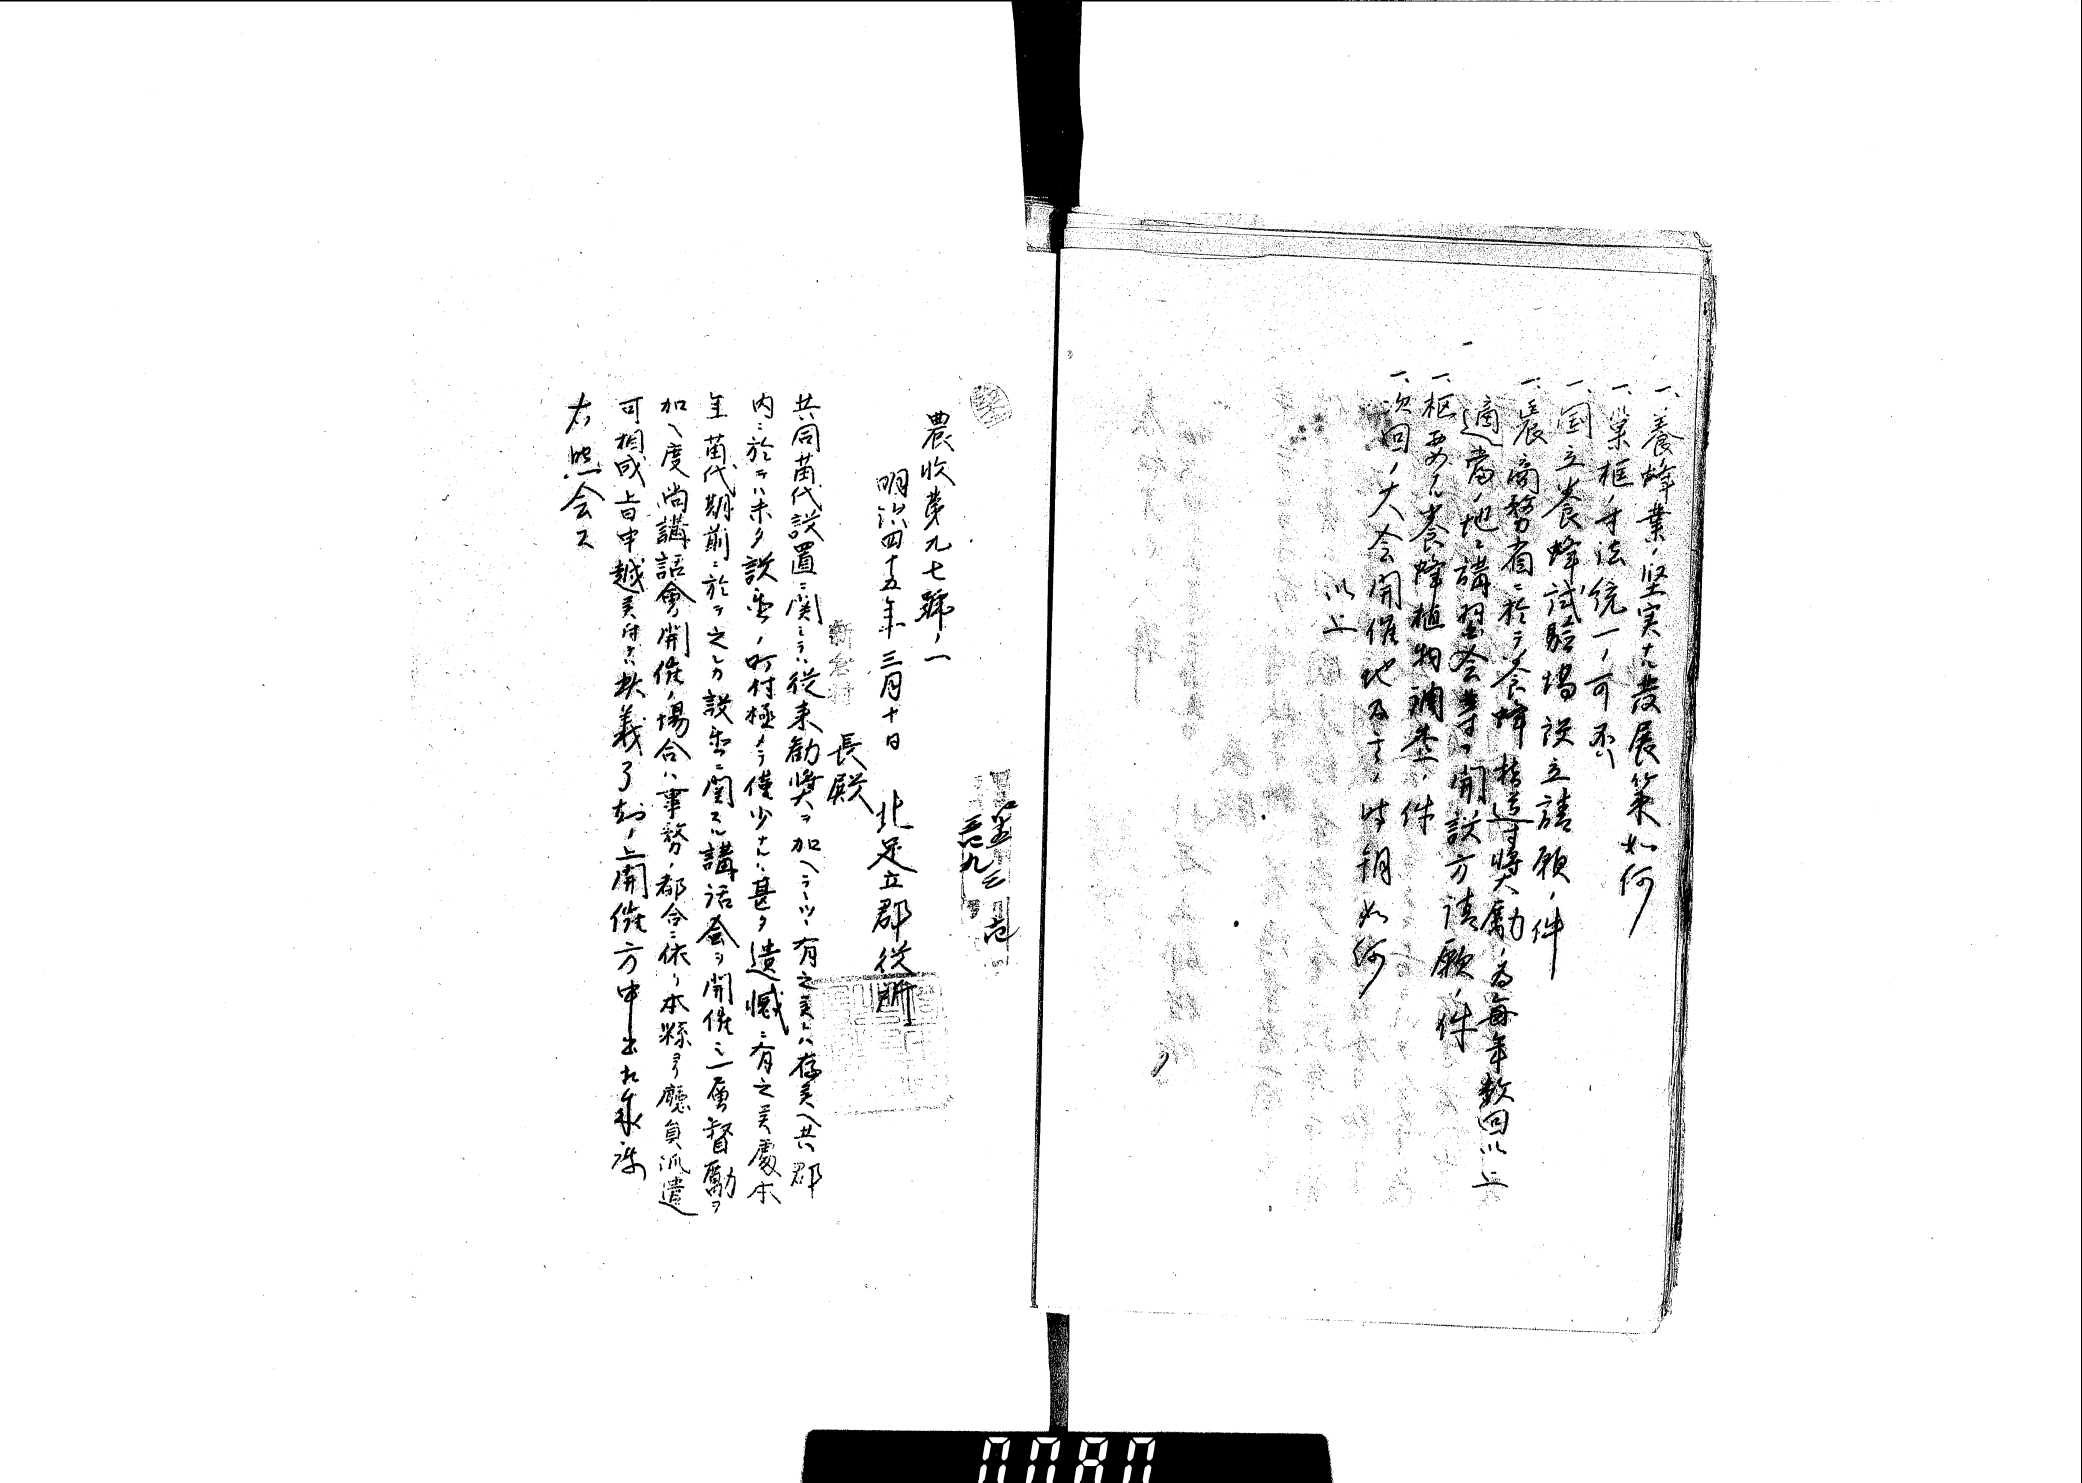 一、養蜂業ノ堅実ナル発展策如何
一、巣框ノ寸法統一ノ可否
一、国立養蜂試験場設立請願ノ件
一、農商務省ニ於テ養蜂 奨励ノ為毎年数回以上
適當ノ地ニ講習会等ヲ開設方請願ノ件
一、枢要ナル養蜂植物調査ノ件
一、次回ノ大会開催地及 時期如何
以上
農收第九七號ノ一
明治四十五年三月十日 北足立郡役所
新倉村長殿
共同苗代設置ニ関シテハ従来勧奨ヲ加ヘラレツヽ有之候ヘハ存候ヘ共郡
内ニ於テハ未タ設置ノ町村極メテ僅少ナルハ甚タ遺憾ニ有之候處本
年苗代期前ニ於テ之レカ設置ニ関スル講話会ヲ開催シ一層督励ヲ
加ヘ度尚講話會開催ノ場合ハ事務ノ都合ニ依リ本縣ヨリ廳員派遣
可相成旨申越候 義了知ノ上開催方申出相成度
右照会ス